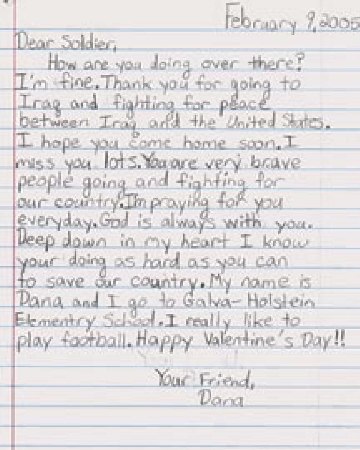 February 9, 2005
Dear Soldier,
How are you doing over there?
I'm fine. Thank you for going to
Iraq and fighting for peace
between Iraq and the United States.
I hope you come home soon. I
miss you lots. You are very brave
people going and fighting for
our country. I'm praying for you
everyday. God is always with you.
Deep down in my heart I know
your doing as hard as you can
to save our country. My name is
Dana and I go to Galva-Holstein
Elementry School. I really like to
play football. Happy Valentine's Day!!
Your Friend,
Dana